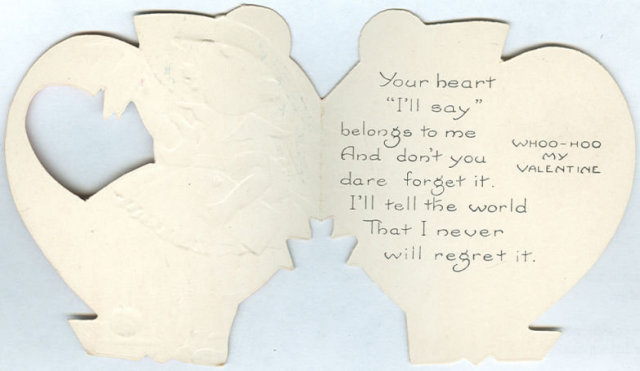 Your heart
"I'll say"
belongs to me
And don't you
dare forget it.
I'll tell the world
That I never
will regret it.
WHOO-HOO
MY
VALENTINE